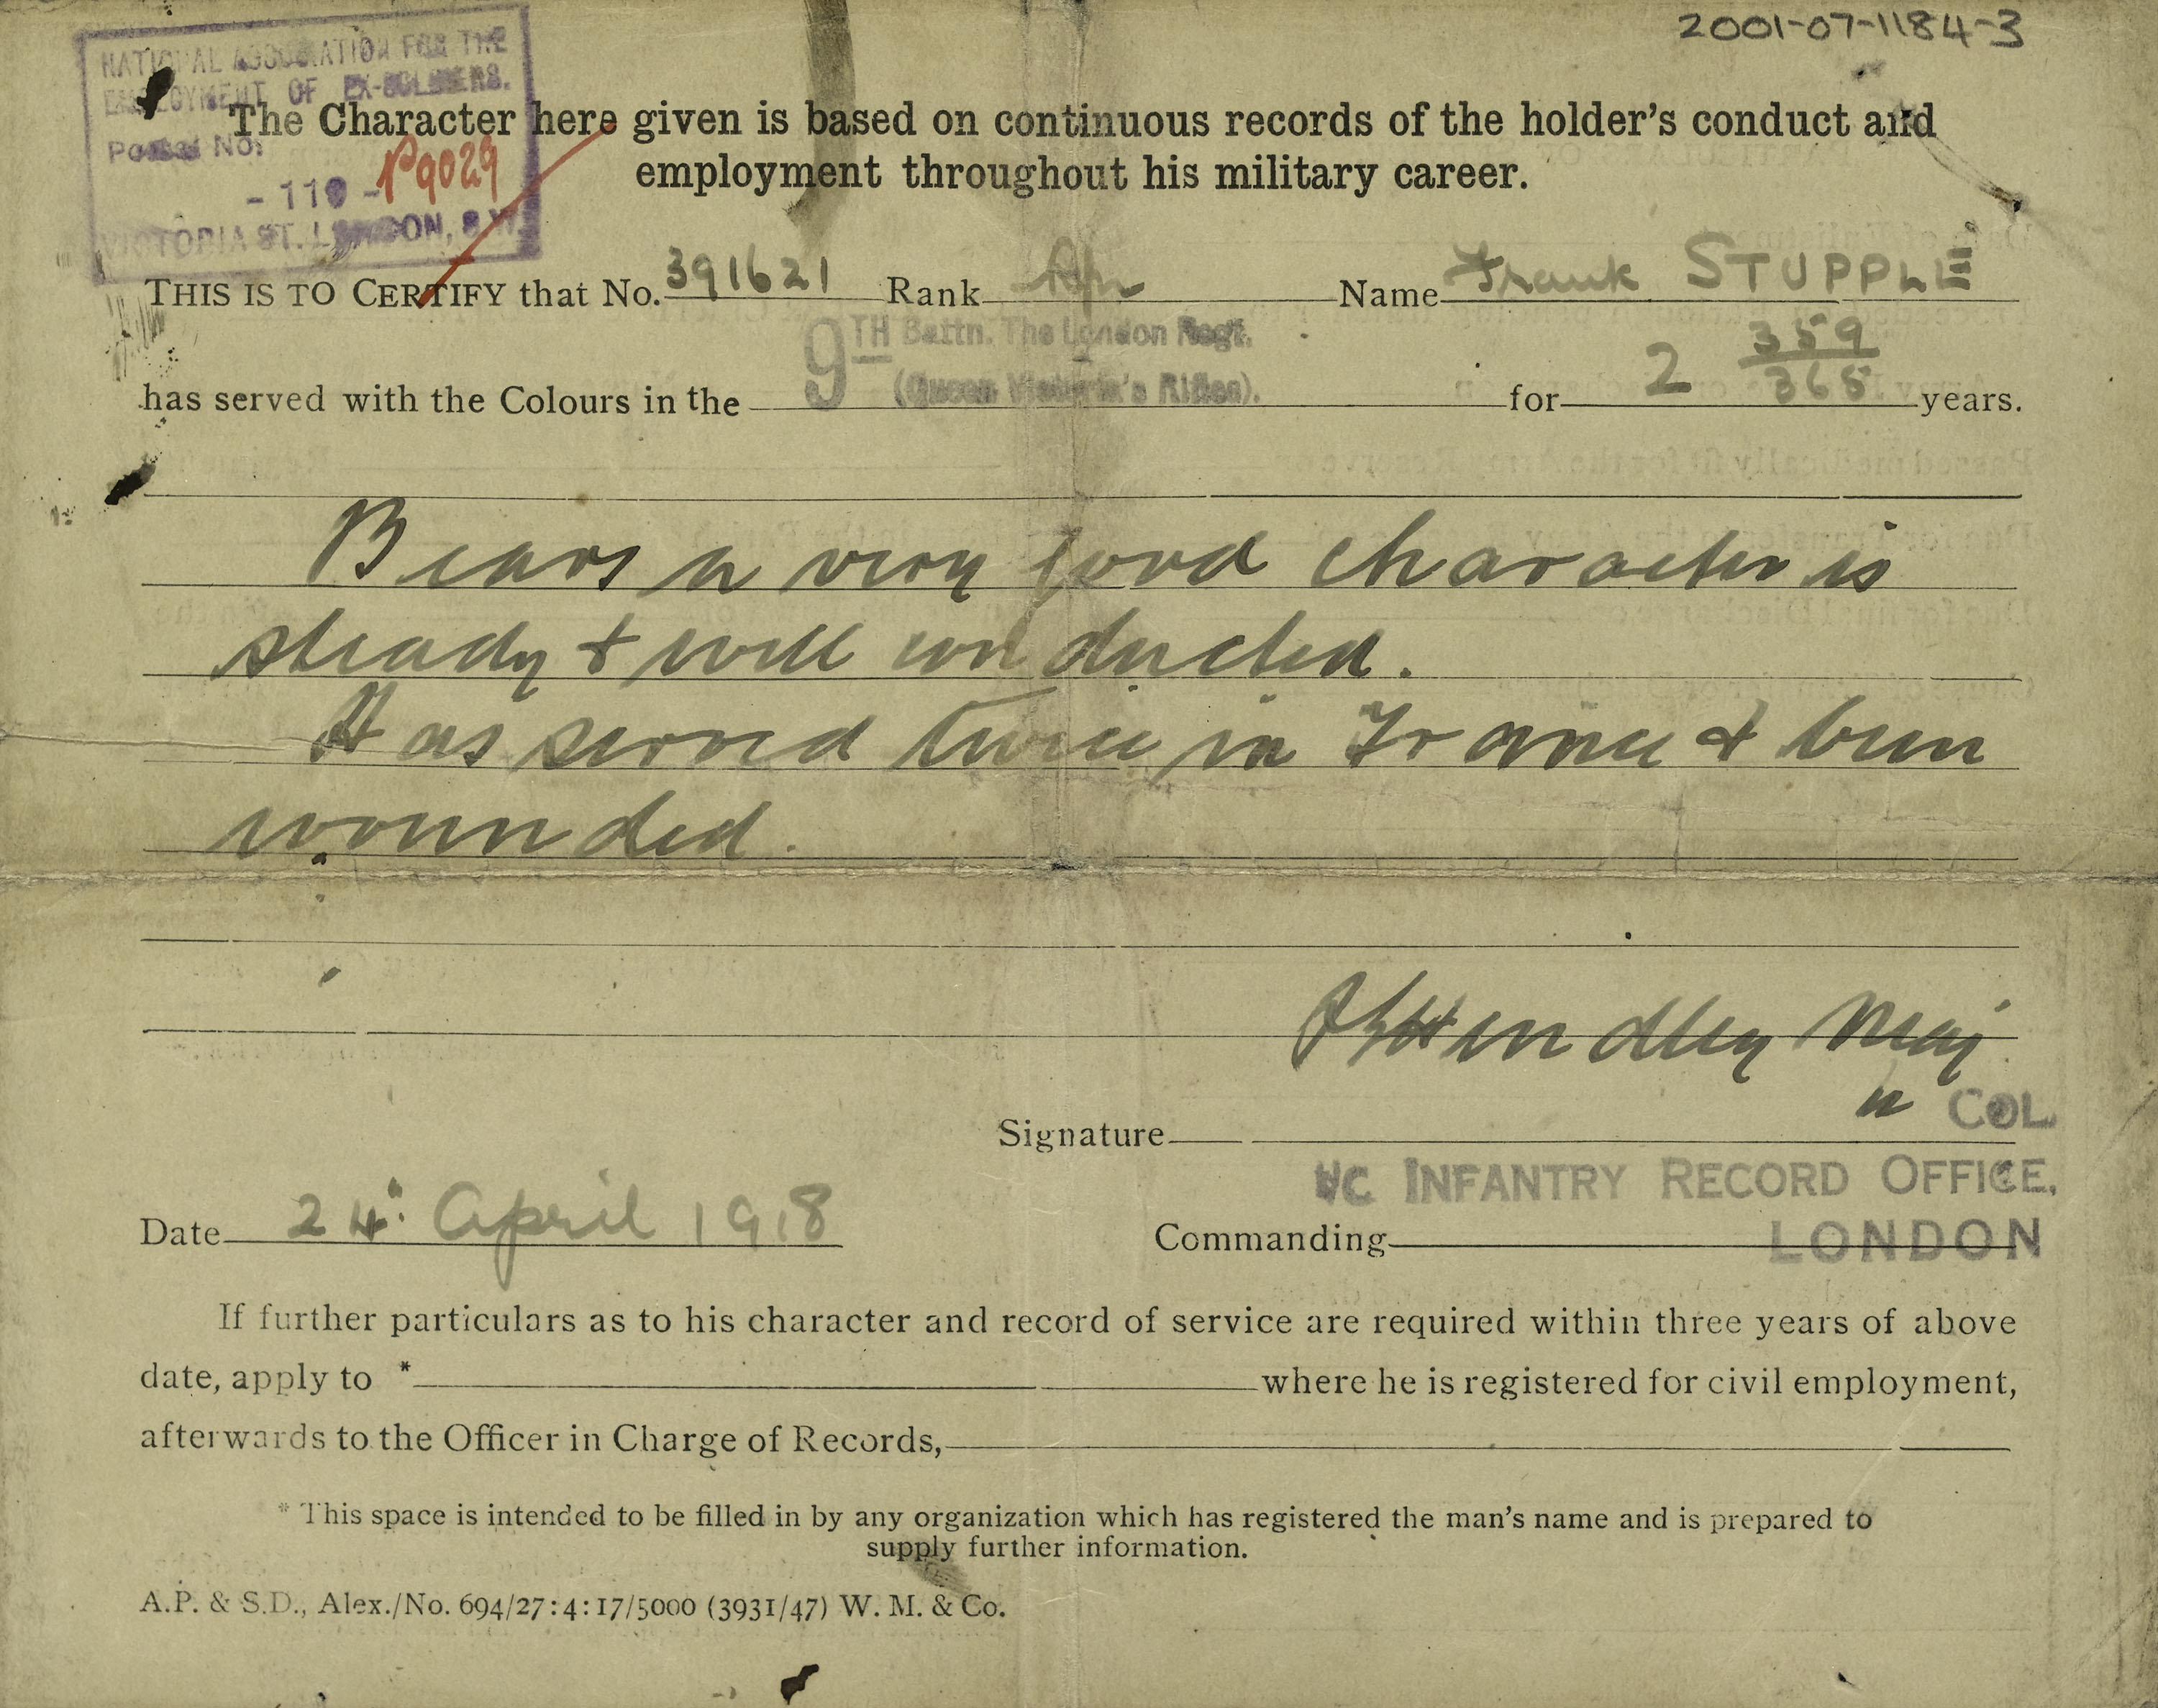 2001-07-1184-3
NATIONAL ASSOCIATION FOR THE
EMPLOYMENT OF EX-SOLDIERS.
No. P9029
- 119 -
VICTORIA ST. LONDON, S.W.
The Character here given is based on continuous records of the holder's conduct and
employment throughout his military career.
THIS IS TO CERTIFY that No. 391621 Rank Name Frank STUPPLE
has served with the Colours in the 9TH Battn. The London Regt. (Queen Victoria's Rifles). for 2 359/365 years.
Bears a very good character is
steady & well conducted.
Has served twice in France & been
wounded.
Hendley Maj
Signature COL
I/C INFANTRY RECORD OFFICE,
Date 24 April 1918 Commanding LONDON
If further particulars as to his character and record of service are required within three years of above
date, apply to * where he is registered for civil employment,
afterwards to the Officer in Charge of Records,
* This space is intended to be filled in by any organization which has registered the man's name and is prepared to
supply further information.
A.P. & S.D., Alex./No. 694/27:4:17/5000 (3931/47) W. M. & Co.